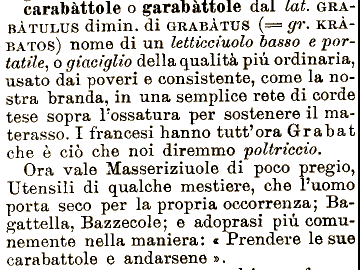 carabàttole o garabàttole dal lat. GRA-
BÀTULUS dimin. di GRABÀTUS (= gr. KRÀ-
BATOS) nome di un letticciuolo basso e por-
tatile, o giaciglio della qualità piú ordinaria,
usato dai poveri e consistente, come la no-
stra branda, in una semplice rete di corde
tese sopra l'ossatura per sostenere il ma-
terasso. I francesi hanno tutt'ora Grabat
che è ciò che noi diremmo poltriccio.
Ora vale Masseriziuole di poco pregio,
Utensili di qualche mestiere, che l'uomo
porta seco per la propria occorrenza; Ba-
gattella, Bazzecole; e adoprasi piú comu-
nemente nella maniera: « Prendere le sue
carabattole e andarsene ».